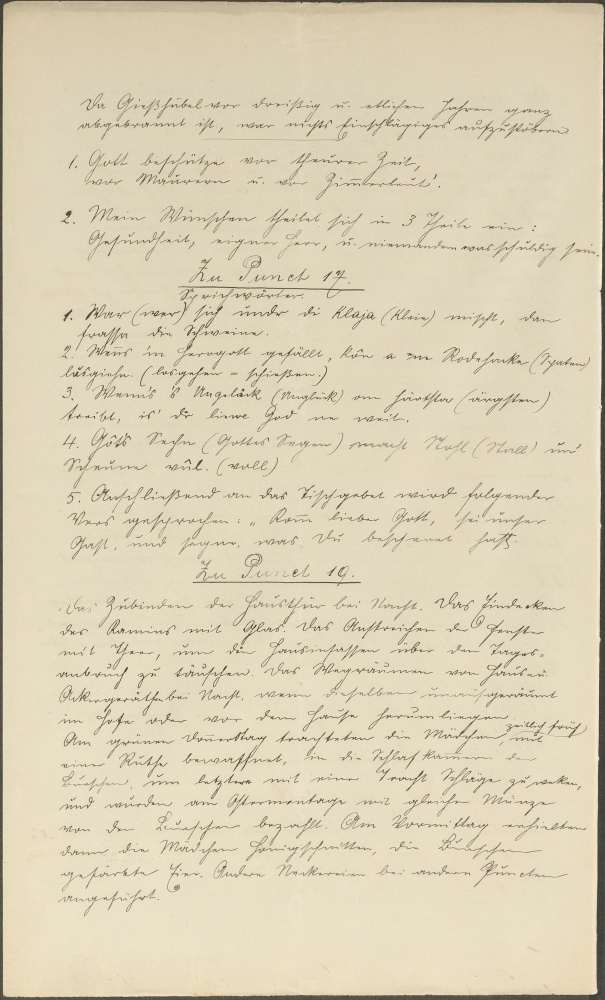 Da Gießhübel vor dreißig u. etlichen Jahren ganz
abgebrannt ist, war nichts Einschlägiges aufzustöbern
1. Gott beschütze vor theurer Zeit,
vor Maurern u. vor Zimmerleut'.
2. Mein Wünschen theilet sich in 3 Theile ein:
Gesundheit, eigner Herr, u. niemandem was schuldig sein.
Zu Punct 17.
Sprichwörter.
1. War (wer) sich undr di Klaja (Kleie) mischt, dan
frassa die Schweine.
2. Wenns 'm Herrgott gefällt, kôn a 'ne Rodehacke (Spaten)
lusgiehn. (losgehen = schießen.)
3. Wenn's 's Ungelück (Unglück) om härtsta (ärgsten)
treibt, is' dr liewe God ne weit.
4. Gôts Sechn (Gottes Segen) macht Stoll (Stall) und
Scheune vûl. (voll)
5. Anschließend an das Tischgebet wird folgender
Vers gesprochen: „Komm lieber Gott, sei unser
Gast, und segne, was Du bescheret hast.
Zu Punct 19.
Das Zubinden der Hausthür bei Nacht. Das Eindecken
des Kamins mit Glas. Das Anstreichen der Fenster
mit Theer, um die Hausinsassen über den Tages-
anbruch zu täuschen. Das Wegräumen von Haus u.
Ackergeräthe bei Nacht, wenn dieselben unausgeräumt
im Hofe oder vor dem Hause herumliegen.
Am grünen Donnerstag trachteten die Mädchen, zeitlich früh mit
einer Ruthe bewaffnet, in die Schlafkammern der
Burschen, um letztere mit einer Tracht Schläge zu wecken,
und wurden am Ostermontage mit gleicher Münze
von den Burschen bezahlt. Am Vormittag erhielten
dann die Mädchen Honigschnitten, die Burschen
gefärbte Eier. Andere Neckereien bei andern Puncten
angeführt.